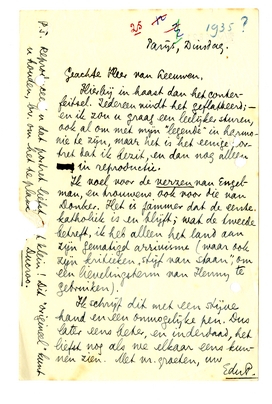 25 1935?
Parijs, Dinsdag.
Geachte Heer van Leeuwen.
Hierbij in haast dan het conter-
feitsel. Iedereen vindt het geflatteerd; —
en ik zou u graag een leelijker sturen,
ook al om met mijn "legende" in harmo-
nie te zijn, maar het is het eenige por-
tret dat ik bezit, en dan nog alleen
in reproductie.
Ik voel voor de verzen van Engel-
man, en trouwens ook voor die van
Donker. Het is jammer dat de eerste
katholiek is en blijft; wat de tweede
betreft, ik heb alleen het land aan
zijn gematigd arrivisme (waar ook
zijn kritieken "stijf van staan", om
een lievelingsterm van Henny te
gebruiken).
Ik schrijf dit met een stijve
hand en een onmogelijke pen. Dus
later eens beter, en inderdaad, het
liefst nog als we elkaar eens kun-
nen zien. Met vr. groeten, uw
EduP.
P.S. Reproduceer u dat portret liefst klein. Dit "origineel" kunt
u houden, om het te plaatsen.